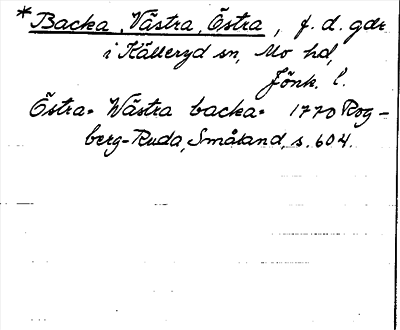 * Backa, Västra, Östra, f. d. gdr
i Källeryd sn, Mo hd,
Jönk. l.
Östra= Wästra backa= 1770 Rog-
berg-Ruda, Småland, s. 604.